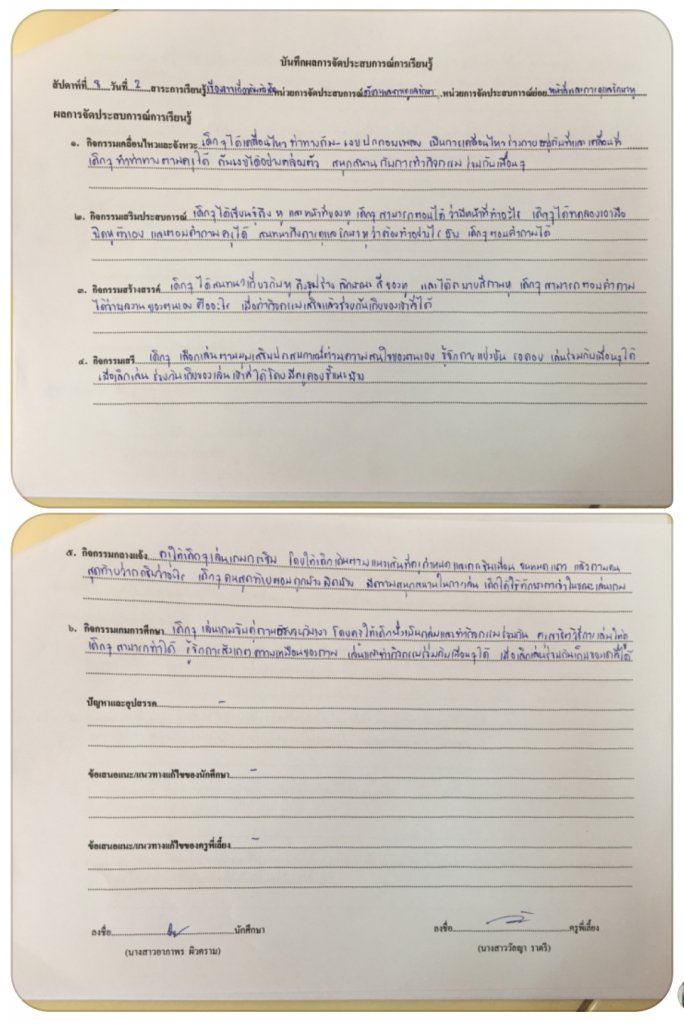 บันทึกผลการจัดประสบการณ์การเรียนรู้
สัปดาห์ที่ ๑ วันที่ 2 สาระการเรียนรู้เรื่องราวเกี่ยวกับตัวเด็ก หน่วยการจัดประสบการณ์ .หน่วยการจัดประสบการณ์ย่อย หน้าที่และการดูแลรักษาหู
ผลการจัดประสบการณ์การเรียนรู้
๑. กิจกรรมเคลื่อนไหวและจังหวะ เด็กๆ ได้เคลื่อนไหว ท่าทาง ประกอบเพลง เป็นการเคลื่อนไหวร่างกายอยู่กับที่และเคลื่อนที่
เด็กๆ ทำท่าทางตามครูได้ อย่างคล่องตัว สนุกสนานกับการทำกิจกรรมร่วมกับเพื่อนๆ
๒. กิจกรรมเสริมประสบการณ์ เด็กๆ ได้เรียนรู้ถึง หู และหน้าที่ของหู เด็กๆ สามารถตอบได้ ว่ามีหน้าที่ทำอะไร เด็กๆ ได้ทดลองเอามือ
ปิดหูตัวเอง และตอบคำถามครูได้ สนทนาถึงการดูแลรักษาหูว่าต้องทำอย่างไร เด็กๆ ตอบคำถามได้
๓. กิจกรรมสร้างสรรค์ เด็กๆ ได้สนทนาเกี่ยวกับหู ถึงรูปร่าง ลักษณะ สีของหู และได้ระบายสีภาพหู เด็กๆ สามารถตอบคำถาม
ได้ว่าผลงานของตนเอง คืออะไร เมื่อทำกิจกรรมเสร็จแล้วช่วยกันเก็บของเข้าที่ได้
๔. กิจกรรมเสรี เด็กๆ เลือกเล่นตามมุมเสริมประสบการณ์ตามความสนใจของตนเอง รู้จักการแบ่งปัน รอคอย เล่นร่วมกับเพื่อนๆ ได้
เมื่อเลิกเล่น ช่วยกันเก็บของเล่นเข้าที่ได้โดยมีครูคอยชี้แนะ
๕. กิจกรรมกลางแจ้ง ครูให้เด็กๆ เล่นเกมกระซิบ โดยให้เด็กเดินตามแนวเส้นที่ครูกำหนดและกระซิบเพื่อน จนหมดแถว แล้วถามคน
สุดท้ายว่ากระซิบว่าอะไร เด็กๆ คนสุดท้ายตอบถูกบ้างผิดบ้าง มีความสนุกสนานในการเล่น เด็กได้ใช้ทักษะการจำในขณะเล่นเกม
๖. กิจกรรมเกมการศึกษา เด็กๆ เล่นเกมจับคู่ภาพ โดยครูให้เด็กนั่งเป็นกลุ่มและทำกิจกรรมร่วมกัน ครูสาธิตวิธีการเล่นให้ดู
เด็กๆ สามารถทำได้ รู้จักการสังเกตความเหมือนของภาพ เล่นและทำกิจกรรมร่วมกับเพื่อนๆ ได้ เมื่อเลิกเล่นช่วยกันเก็บของเข้าที่ได้
ปัญหาและอุปสรรค -
ข้อเสนอแนะ/แนวทางแก้ไขของนักศึกษา -
ข้อเสนอแนะ/แนวทางแก้ไขของครูพี่เลี้ยง -
ลงชื่อ นักศึกษา ลงชื่อ ครูพี่เลี้ยง
(นางสาวอาภาพร ผิวคราม) (นางสาววัลญา ราตรี)